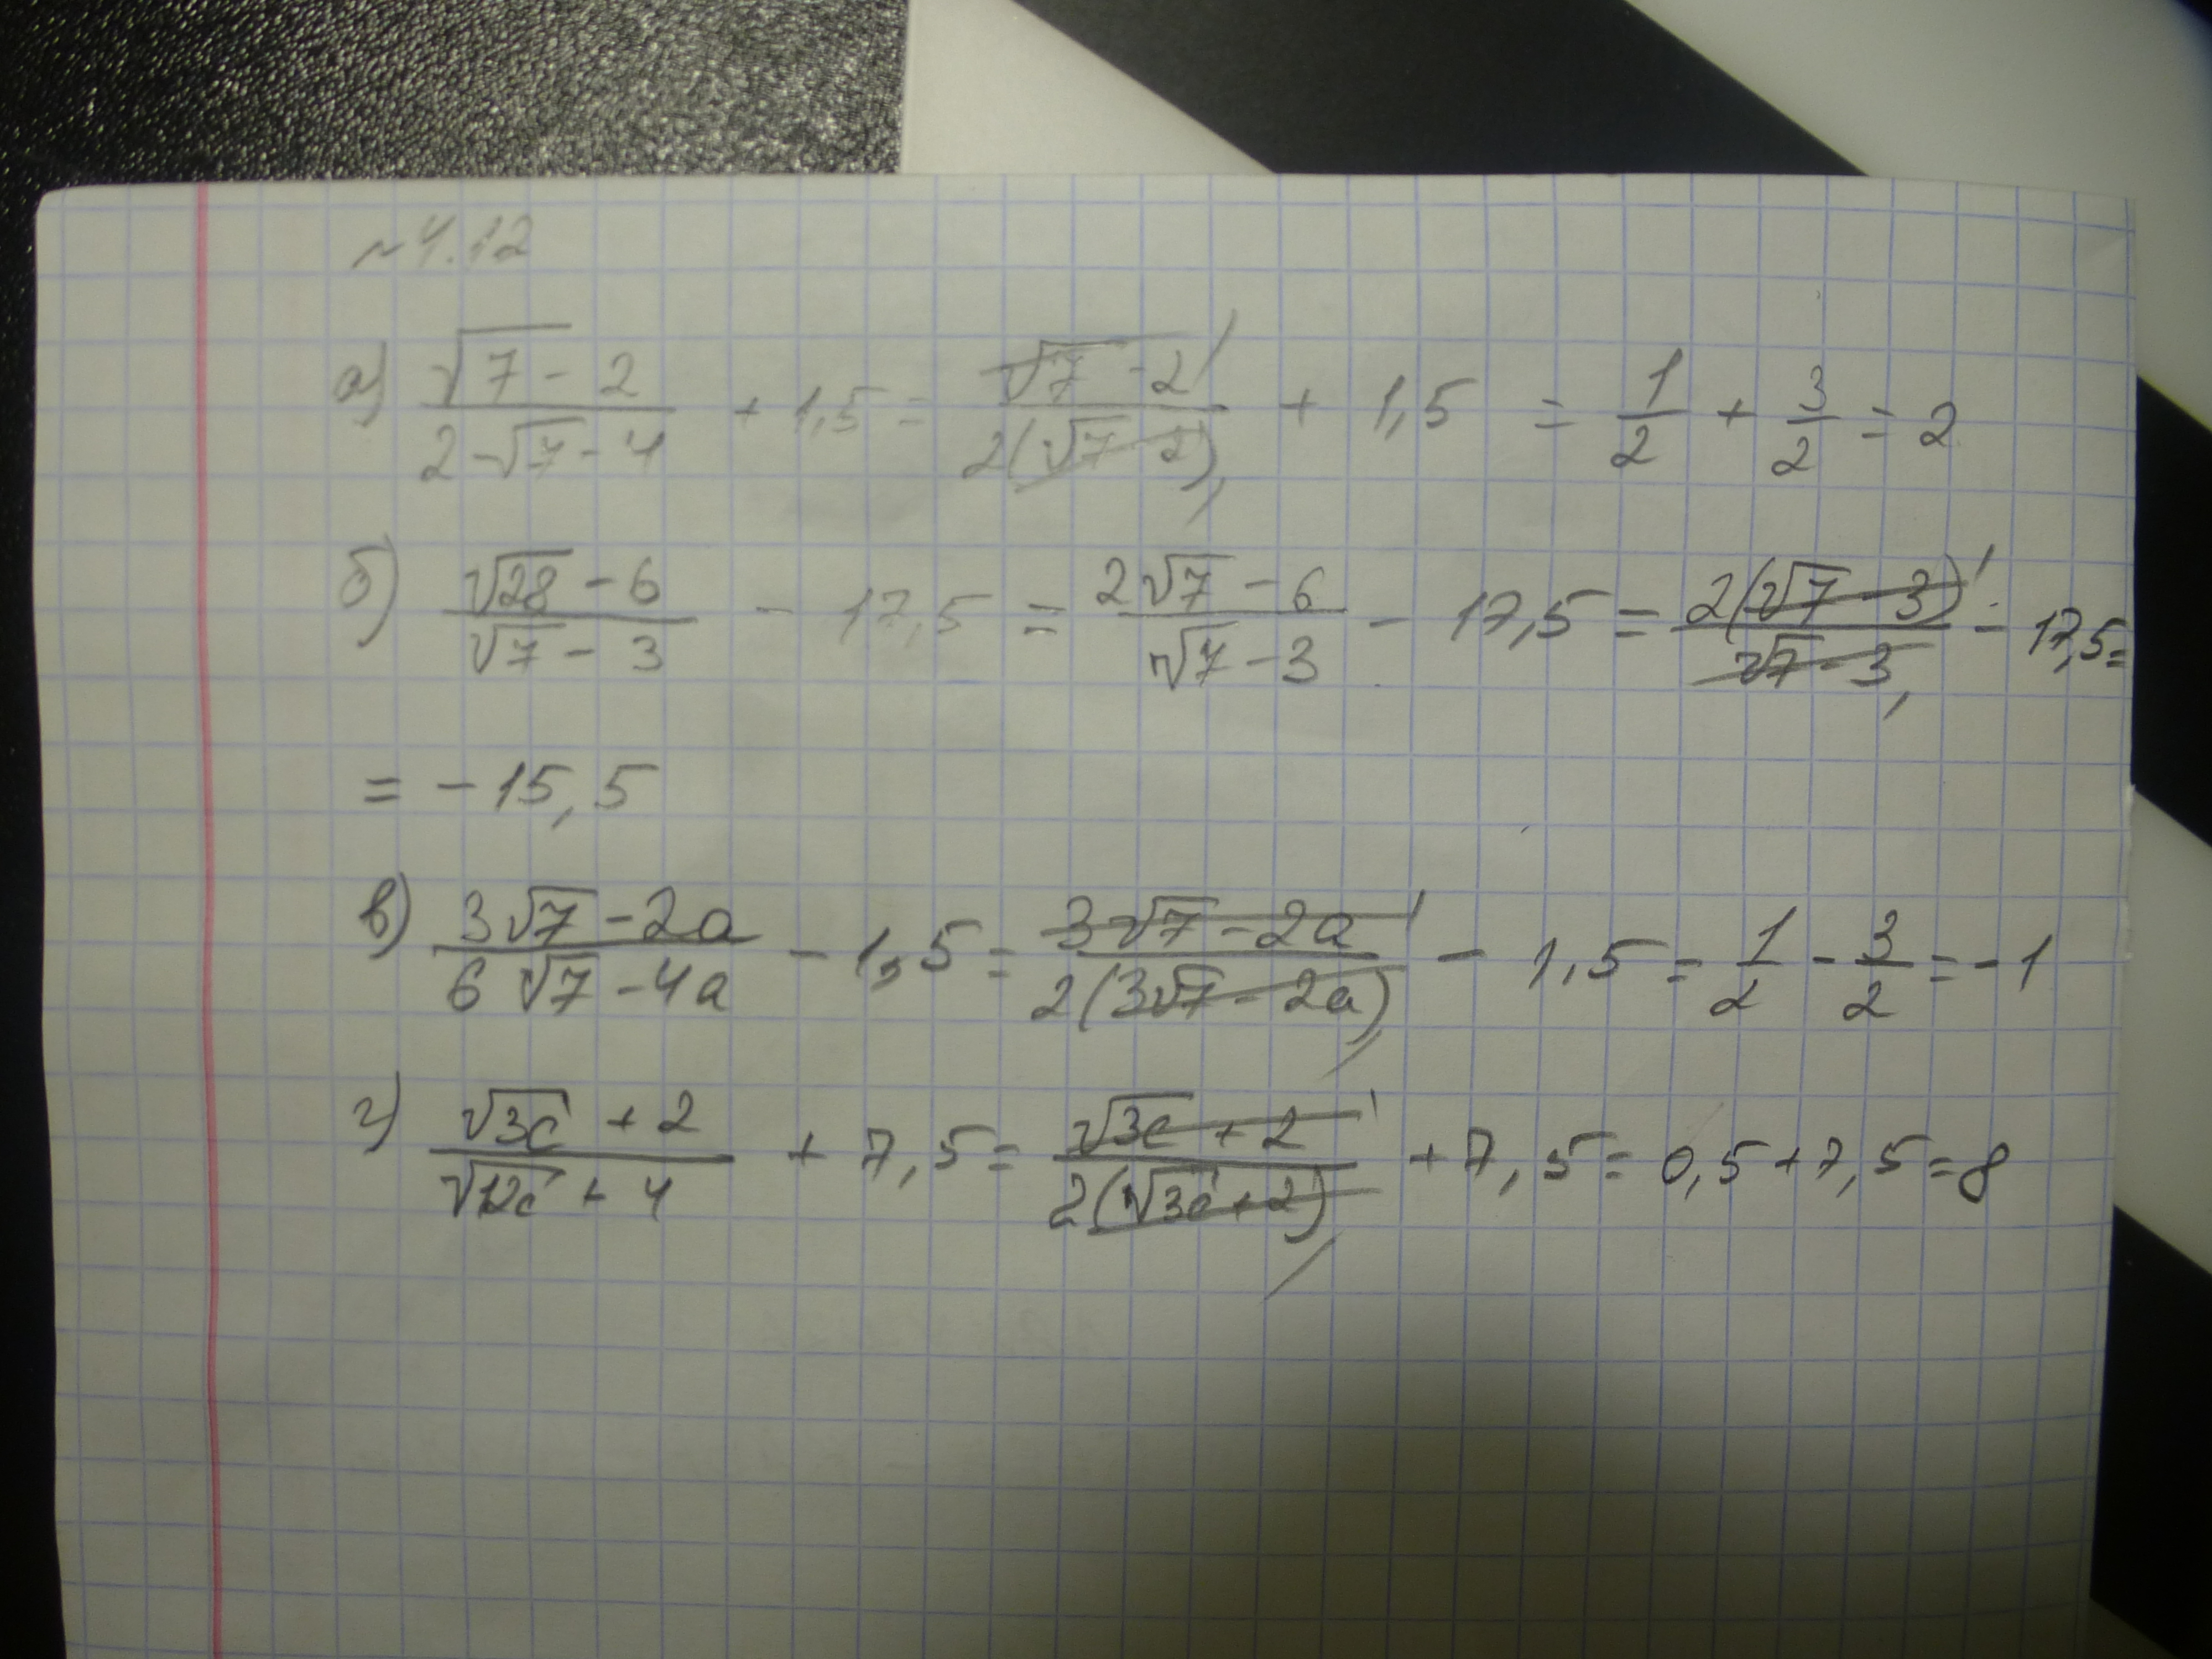 ~4.12
а) (√7 - 2)/(2√7 - 4) + 1,5 = (√7 - 2)/(2(√7 - 2)) + 1,5 = 1/2 + 3/2 = 2
б) (√28 - 6)/(√7 - 3) - 17,5 = (2√7 - 6)/(√7 - 3) - 17,5 = (2(√7 - 3))/(√7 - 3) - 17,5 =
= - 15,5
в) (3√7 - 2a)/(6√7 - 4a) - 1,5 = (3√7 - 2a)/(2(3√7 - 2a)) - 1,5 = 1/2 - 3/2 = - 1
г) (√3c + 2)/(√12c + 4) + 7,5 = (√3c + 2)/(2(√3c + 2)) + 7,5 = 0,5 + 7,5 = 8